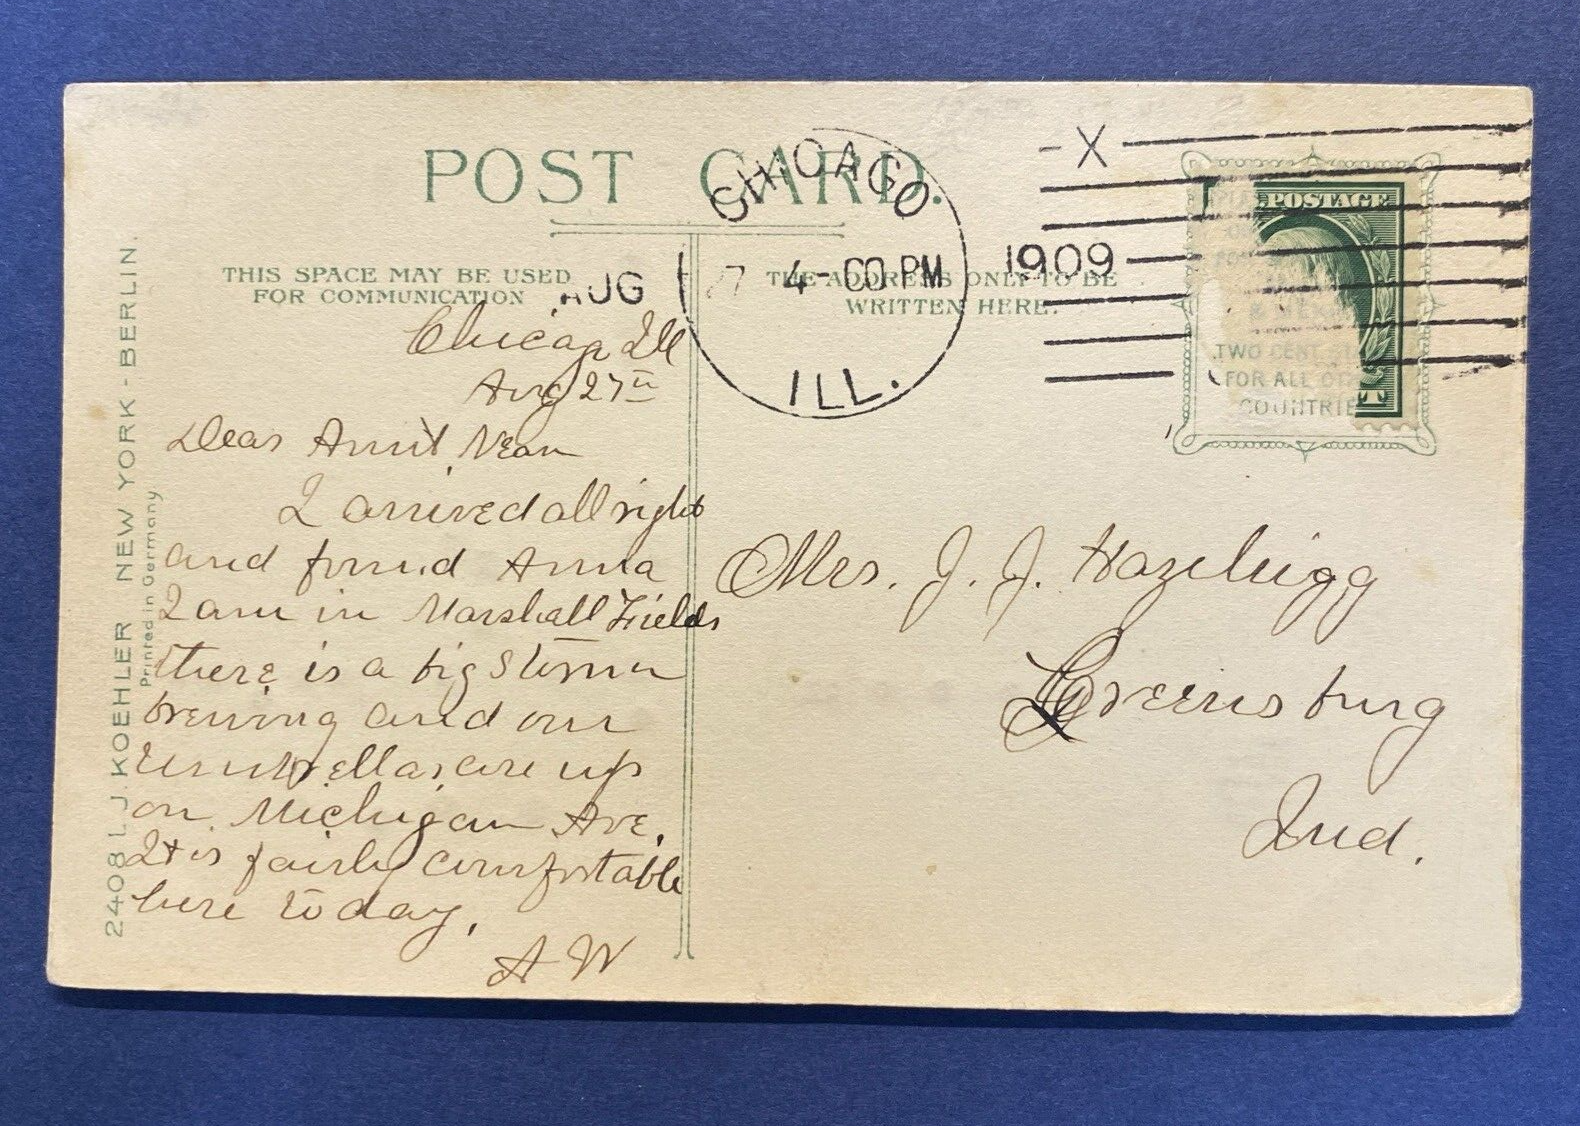 POST CARD.
CHICAGO
AUG 27 4-00 PM 1909
ILL.
X
THIS SPACE MAY BE USED
FOR COMMUNICATION
THE ADDRESS ONLY TO BE
WRITTEN HERE.
POSTAGE
& MEX
TWO CENT STA
FOR ALL OTH
COUNTRIE
2408 L.J. KOEHLER NEW YORK - BERLIN.
Printed in Germany
Chicago Ill
Aug 27th
Dear Aunt Nean
I arrived all right
and found Anna
I am in Marshall Fields
there is a big storm
brewing and our
umbrellas are up
on Michigan Ave.
It is fairly comfortable
here today.
A W
Mrs. J. J. Hazelrigg
Greensburg
Ind.